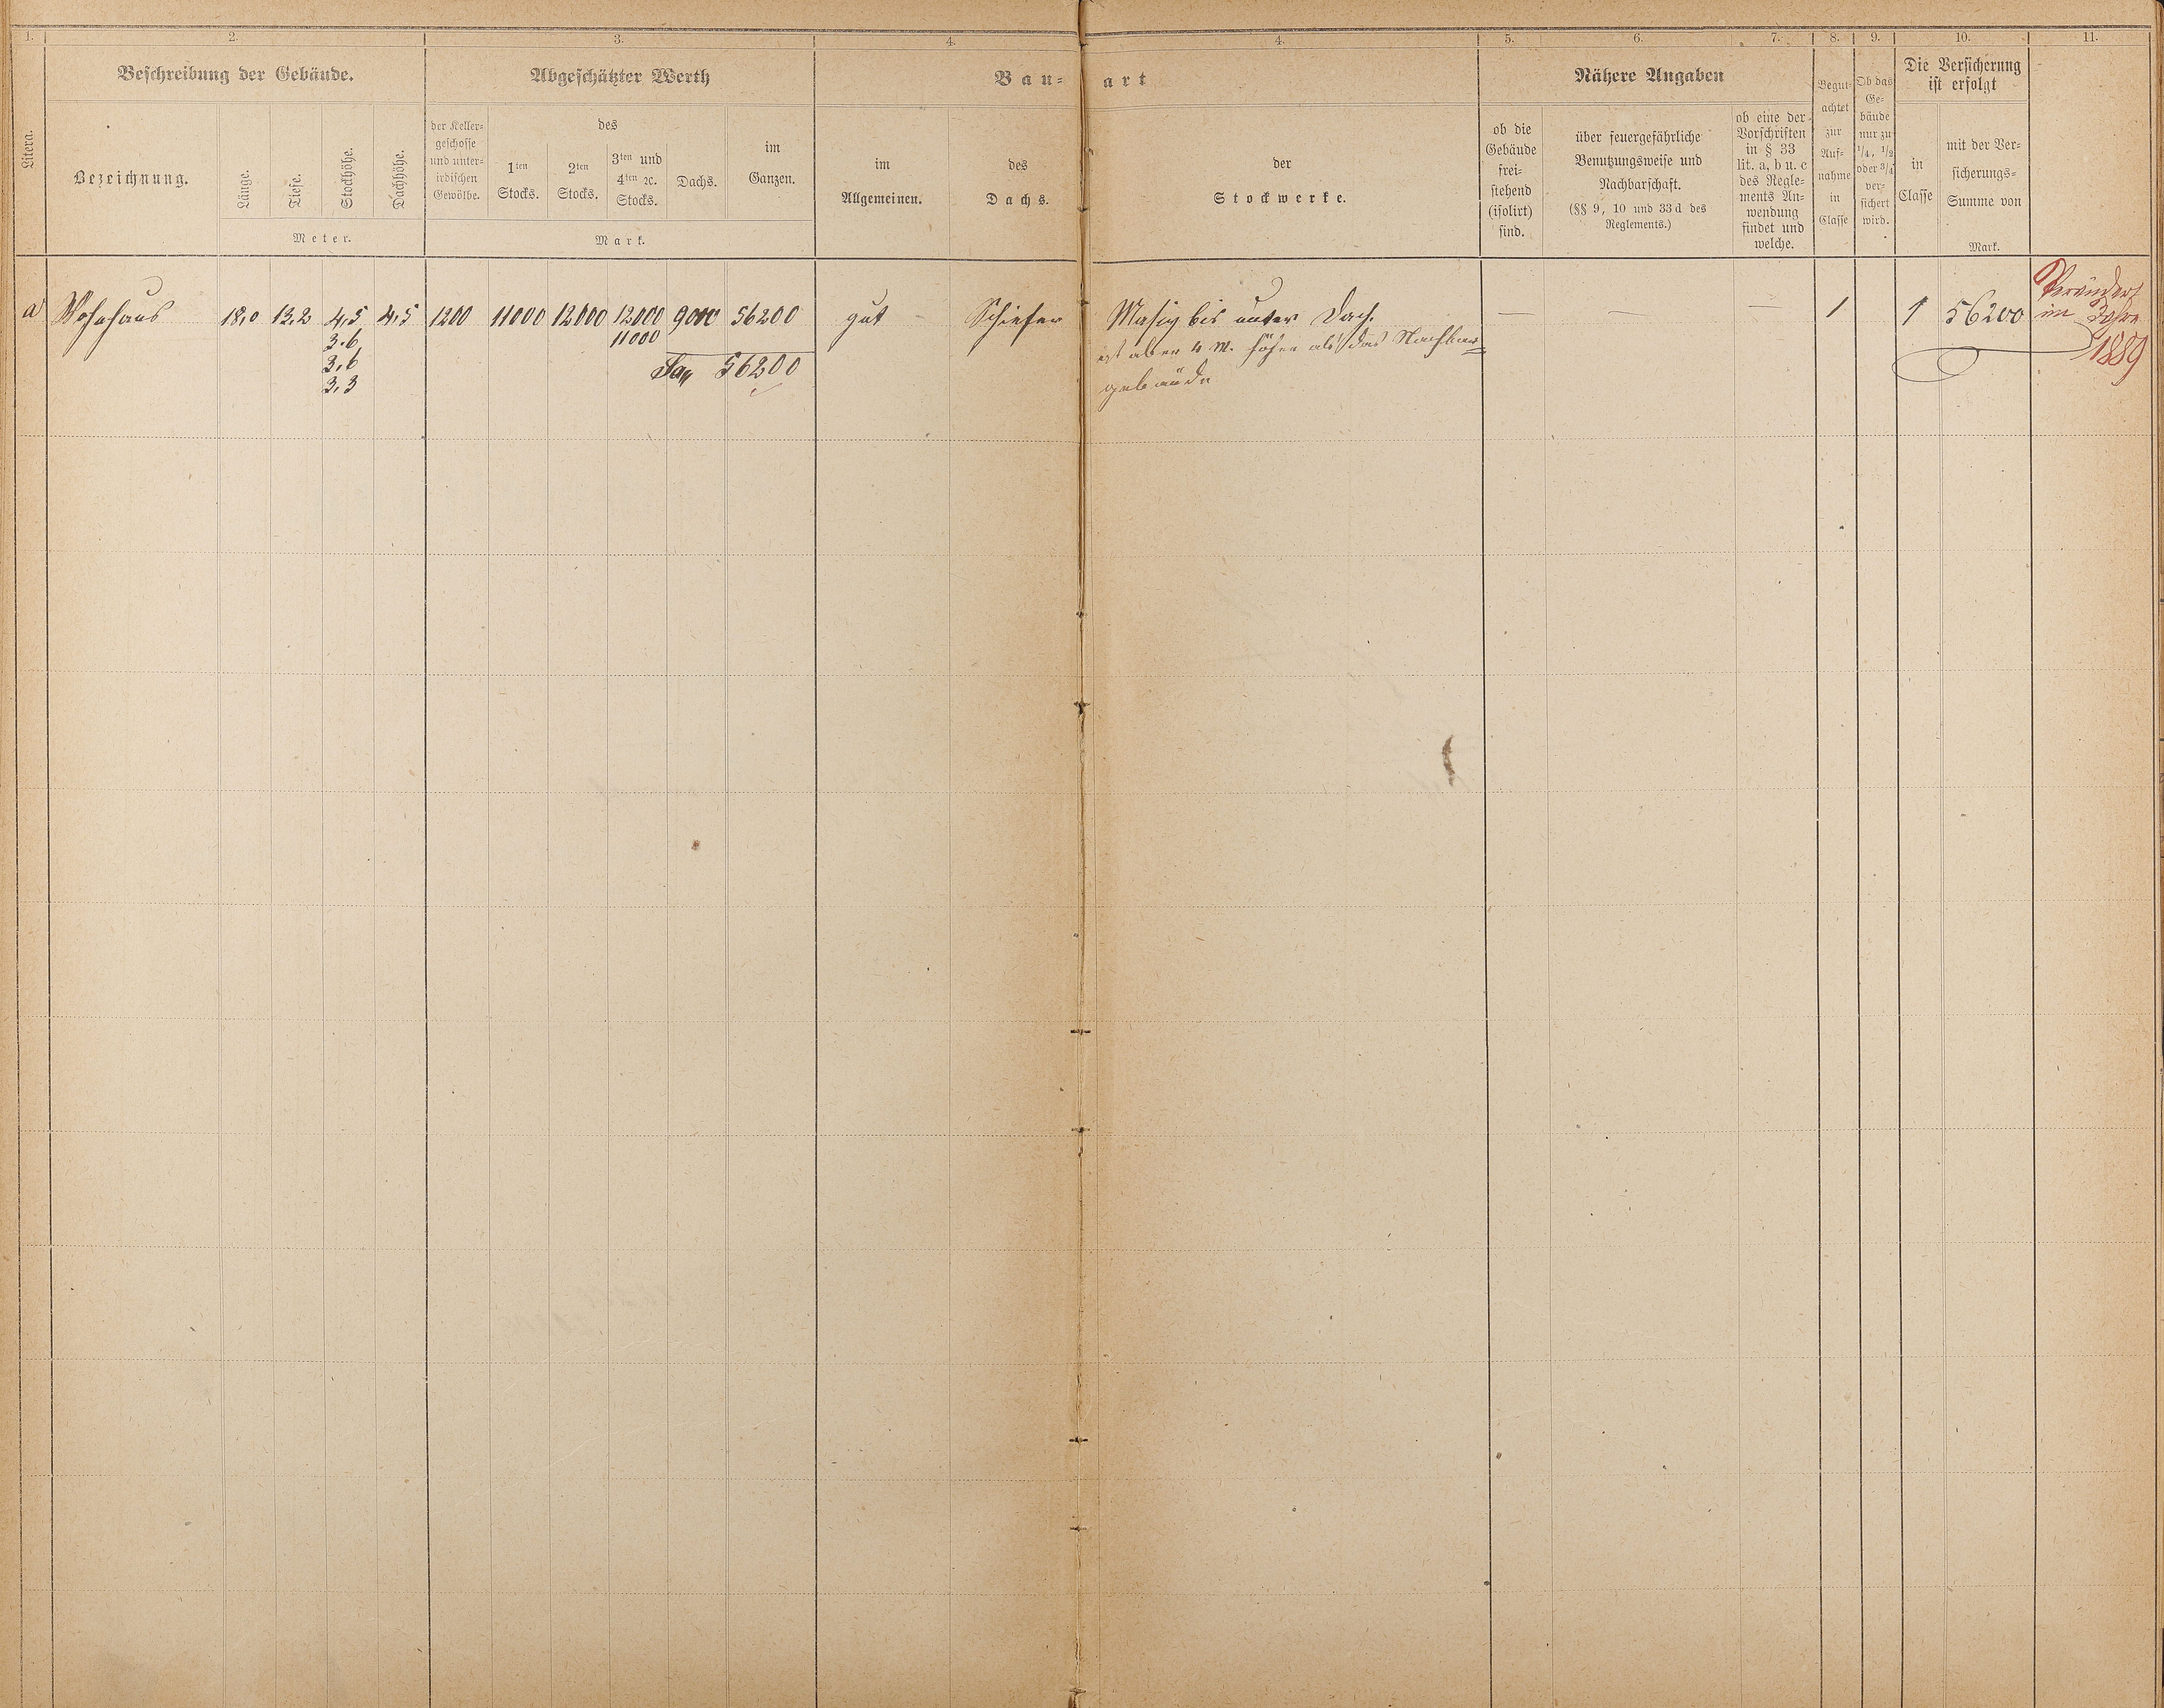 1. 2. 3. 4. 4. 5. 6. 7. 8. 9. 10. 11.
Litera.
Beschreibung der Gebäude.
Bezeichnung.
Länge.
Tiefe.
Stockhöhe.
Dachhöhe.
Meter.
Abgeschätzter Werth
der Keller-
geschosse
und unter-
irdischen
Gewölbe.
des
1ten
Stocks.
2ten
Stocks.
3ten und
4ten ꝛc.
Stocks.
Dachs.
im
Ganzen.
Mark.
Bau- art
im
Allgemeinen.
des
Dachs.
der
Stockwerke.
Nähere Angaben
ob die
Gebäude
frei-
stehend
(isolirt)
sind.
über feuergefährliche
Benutzungsweise und
Nachbarschaft.
(§§ 9, 10 und 33 d des
Reglements.)
ob eine der
Vorschriften
in § 33
lit. a, b u. c
des Regle-
ments An-
wendung
findet und
welche.
Begut-
achtet
zur
Auf-
nahme
in
Classe
Ob das
Ge-
bäude
nur zu
1/4, 1/2
oder 3/4
ver-
sichert
wird.
Die Versicherung
ist erfolgt
in
Classe
mit der Ver-
sicherungs-
Summe von
Mark.
a Wohnhaus 18,0 13,2 4,5 4,5 1200 11000 12000 12000 9000 56200 gut Schiefer Masiv bis unter Dach. — — — 1 1 56200
3.6 11000 ist aber 4 M. höher als das Nachbar=
3,6 Sa 56200 gebäude
3,3
Verändert
im Jahre
1889